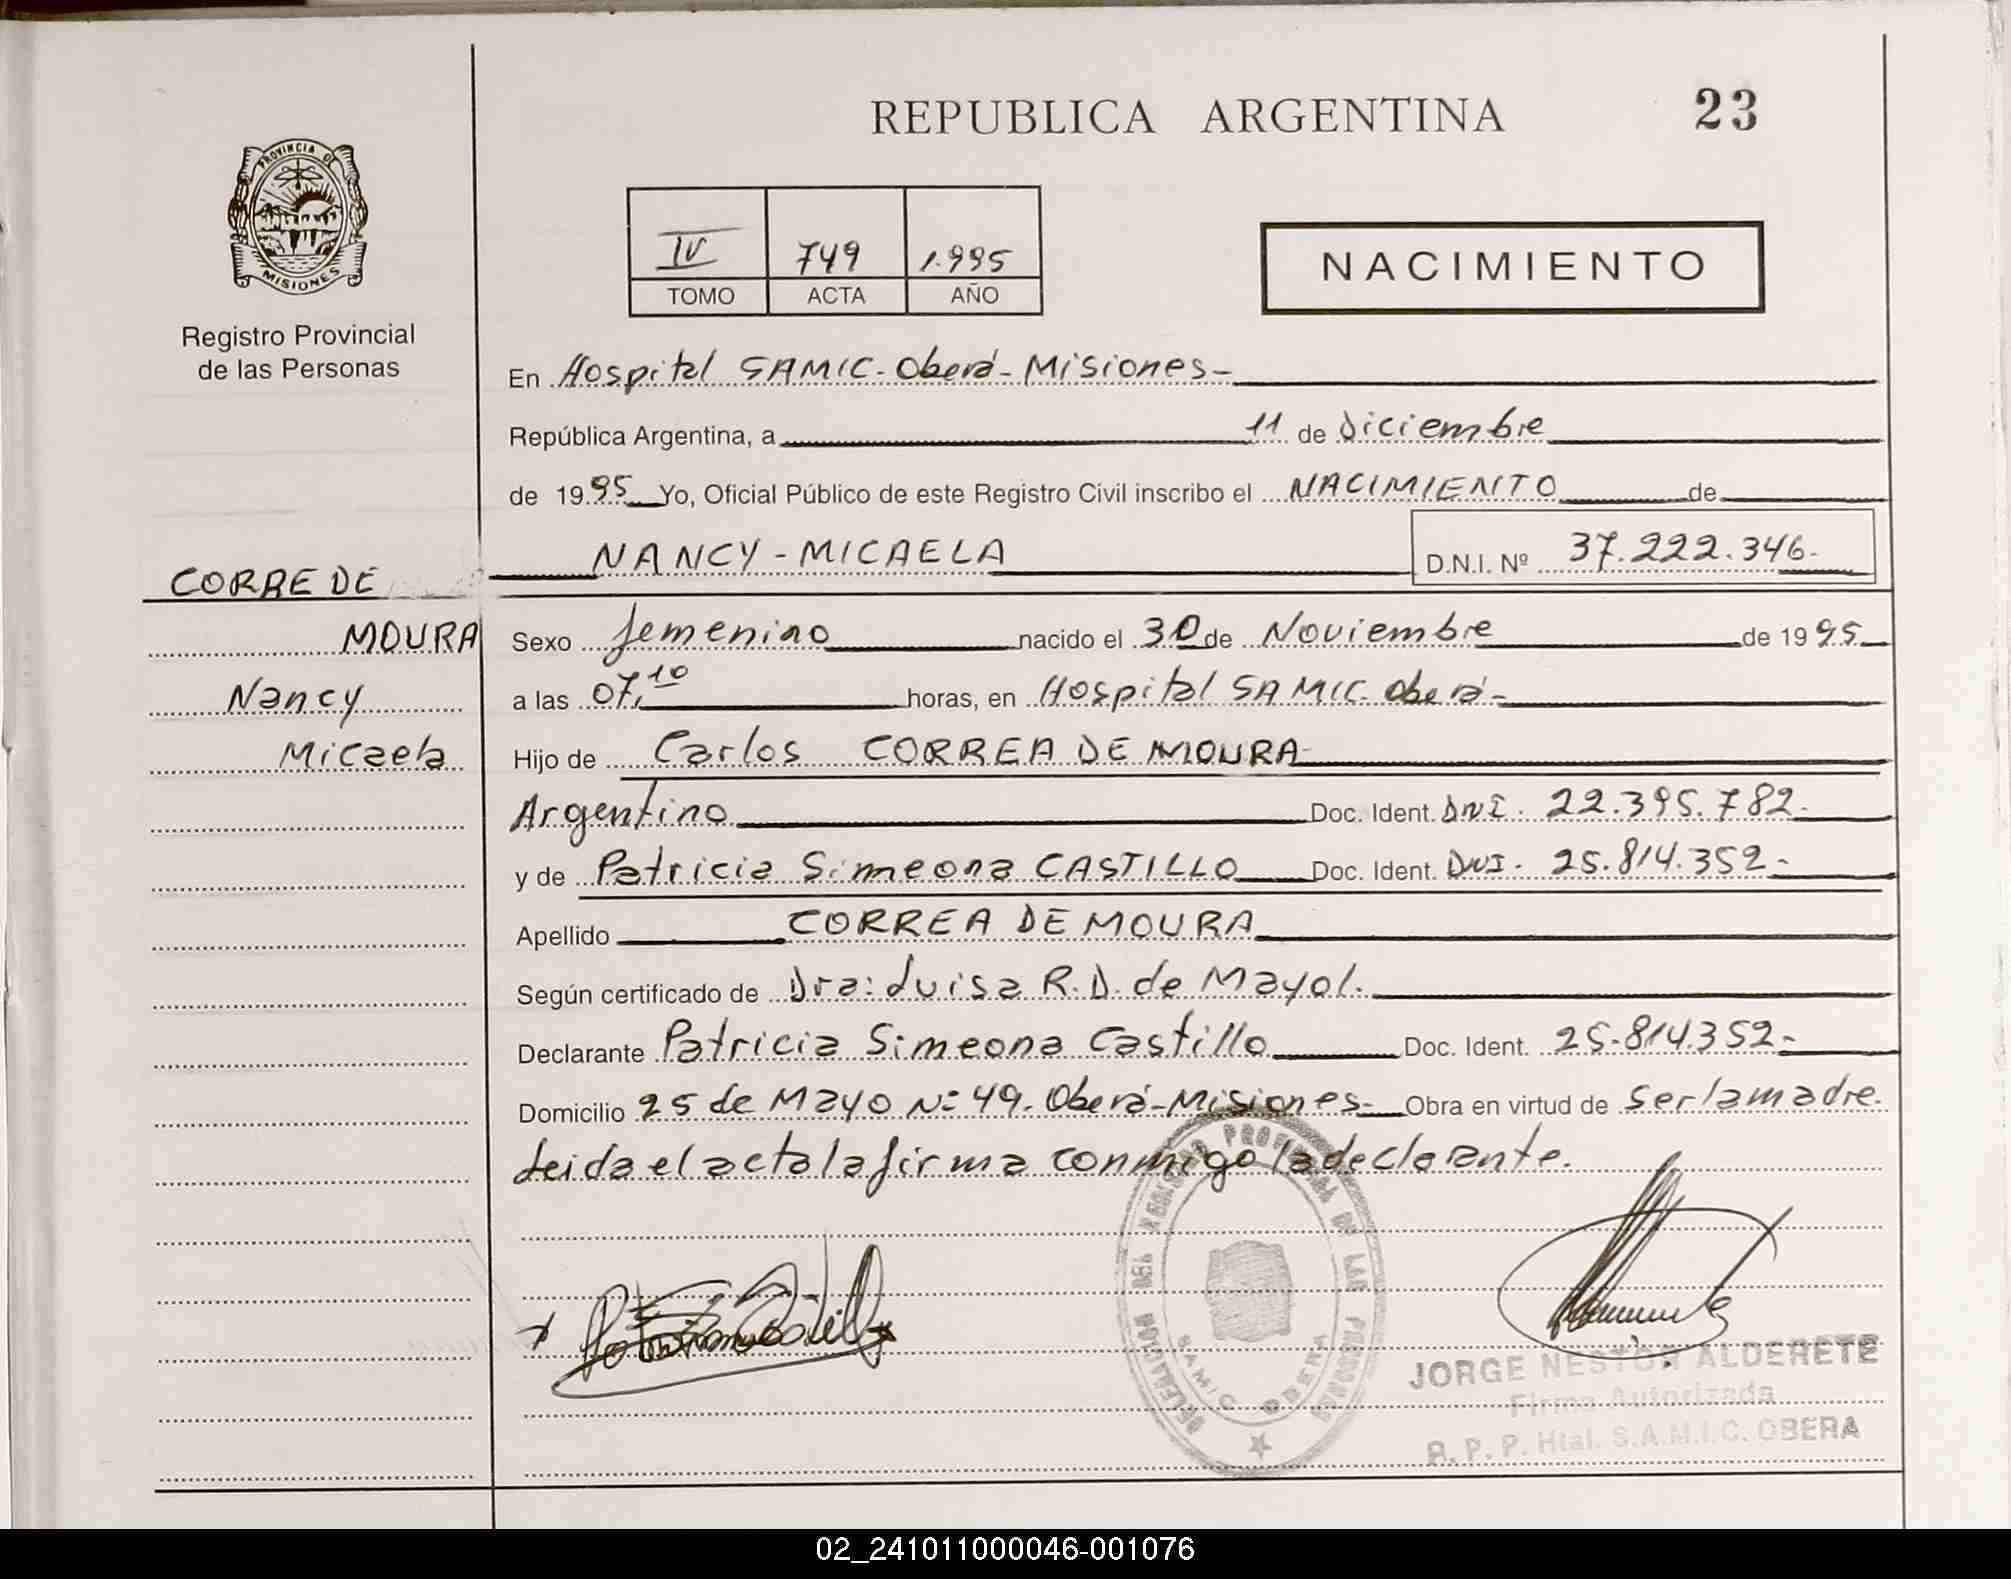 REPUBLICA ARGENTINA
23
PROVINCIA DE
MISIONES
Registro Provincial
de las Personas
IV 749 1.995
TOMO ACTA AÑO
NACIMIENTO
En Hospital SAMIC - Oberá - Misiones -
República Argentina, a 11 de Diciembre
de 1995 Yo, Oficial Público de este Registro Civil inscribo el NACIMIENTO de
NANCY - MICAELA D.N.I. Nº 37.222.346-
CORRE DE
MOURA
Nancy
Micaela
Sexo femenino nacido el 30 de Noviembre de 1995
a las 07,10 horas, en Hospital SAMIC - Oberá -
Hijo de Carlos CORREA DE MOURA
Argentino Doc. Ident. DNI. 22.395.782-
y de Patricia Simeona CASTILLO Doc. Ident. DNI. 25.814.352-
Apellido CORREA DE MOURA
Según certificado de Dra: Luisa R. D. de Mayol.
Declarante Patricia Simeona Castillo Doc. Ident. 25.814.352-
Domicilio 25 de Mayo Nº 49. Oberá - Misiones - Obra en virtud de ser la madre.
Leida el acta la firma conmigo la declarante.
DELEGACION DEL REGISTRO PROVINCIAL DE LAS PERSONAS
SAMIC OBERA
JORGE NESTOR ALDERETE
Firma Autorizada
R. P. P. Htal. S.A.M.I.C. OBERA
02_241011000046-001076